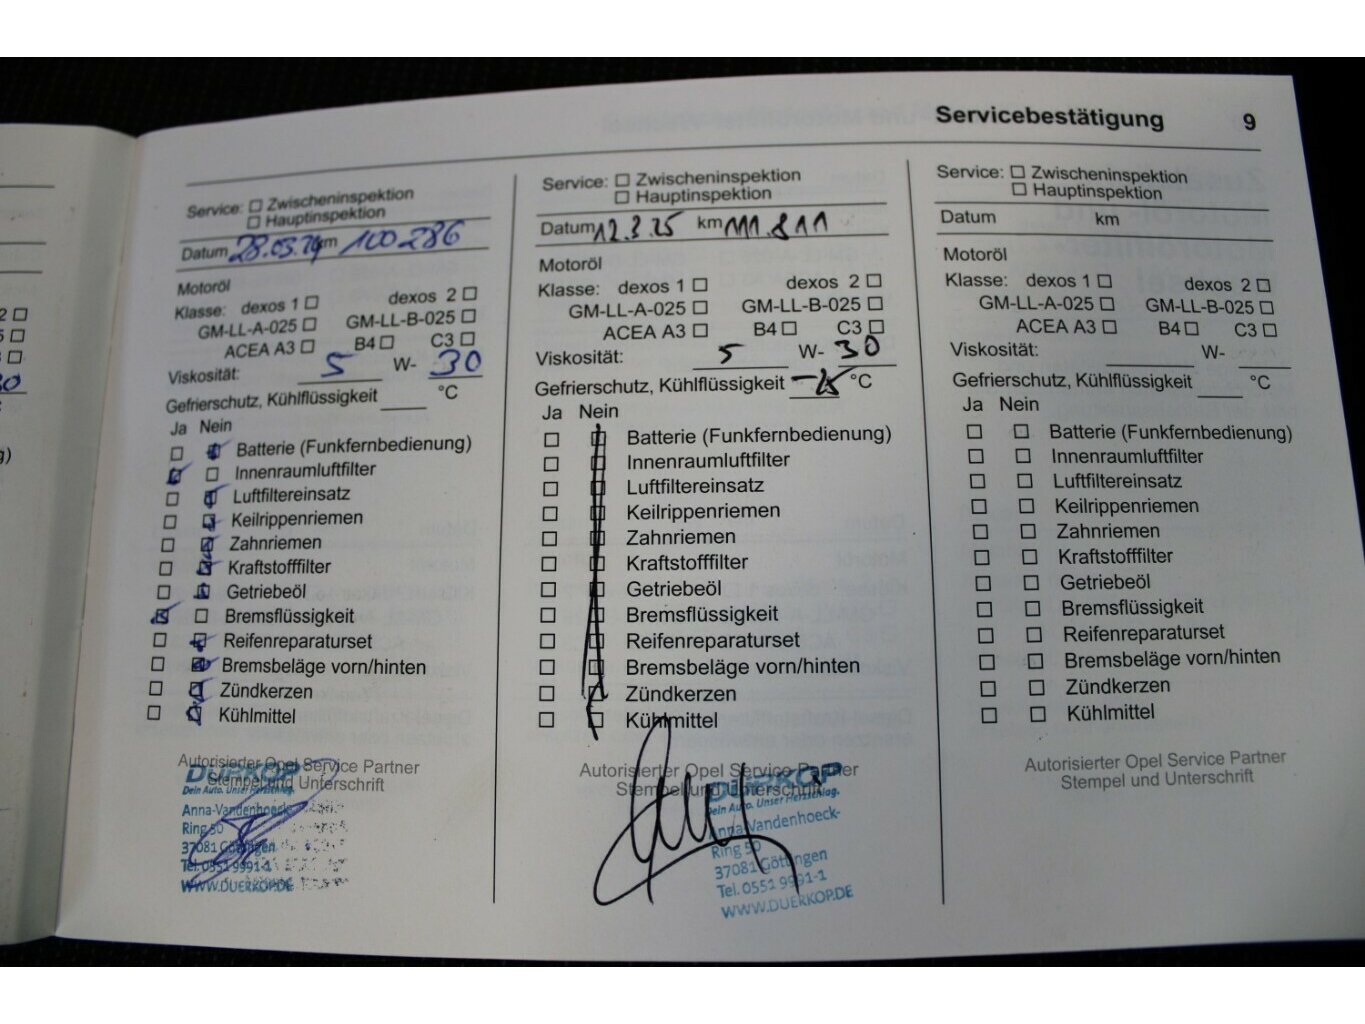 Servicebestätigung 9
Service: Zwischeninspektion
Hauptinspektion
Datum 28.03.24 km 100286
Motoröl
Klasse: dexos 1 dexos 2
GM-LL-A-025 GM-LL-B-025
ACEA A3 B4 C3
Viskosität: 5 W- 30
Gefrierschutz, Kühlflüssigkeit °C
Ja Nein
Batterie (Funkfernbedienung)
Innenraumluftfilter
Luftfiltereinsatz
Keilrippenriemen
Zahnriemen
Kraftstofffilter
Getriebeöl
Bremsflüssigkeit
Reifenreparaturset
Bremsbeläge vorn/hinten
Zündkerzen
Kühlmittel
Autorisierter Opel Service Partner
Stempel und Unterschrift
DUERKOP
Dein Auto. Unser Herzschlag.
Anna-Vandenhoeck-
Ring 50
37081 Göttingen
Tel. 0551 9991-1
WWW.DUERKOP.DE
Service: Zwischeninspektion
Hauptinspektion
Datum 12.3.25 km 111.811
Motoröl
Klasse: dexos 1 dexos 2
GM-LL-A-025 GM-LL-B-025
ACEA A3 B4 C3
Viskosität: 5 W- 30
Gefrierschutz, Kühlflüssigkeit °C
Ja Nein
Batterie (Funkfernbedienung)
Innenraumluftfilter
Luftfiltereinsatz
Keilrippenriemen
Zahnriemen
Kraftstofffilter
Getriebeöl
Bremsflüssigkeit
Reifenreparaturset
Bremsbeläge vorn/hinten
Zündkerzen
Kühlmittel
Autorisierter Opel Service Partner
Stempel und Unterschrift
DUERKOP
Dein Auto. Unser Herzschlag.
Anna-Vandenhoeck-
Ring 50
37081 Göttingen
Tel. 0551 9991-1
WWW.DUERKOP.DE
Service: Zwischeninspektion
Hauptinspektion
Datum km
Motoröl
Klasse: dexos 1 dexos 2
GM-LL-A-025 GM-LL-B-025
ACEA A3 B4 C3
Viskosität: W-
Gefrierschutz, Kühlflüssigkeit °C
Ja Nein
Batterie (Funkfernbedienung)
Innenraumluftfilter
Luftfiltereinsatz
Keilrippenriemen
Zahnriemen
Kraftstofffilter
Getriebeöl
Bremsflüssigkeit
Reifenreparaturset
Bremsbeläge vorn/hinten
Zündkerzen
Kühlmittel
Autorisierter Opel Service Partner
Stempel und Unterschrift